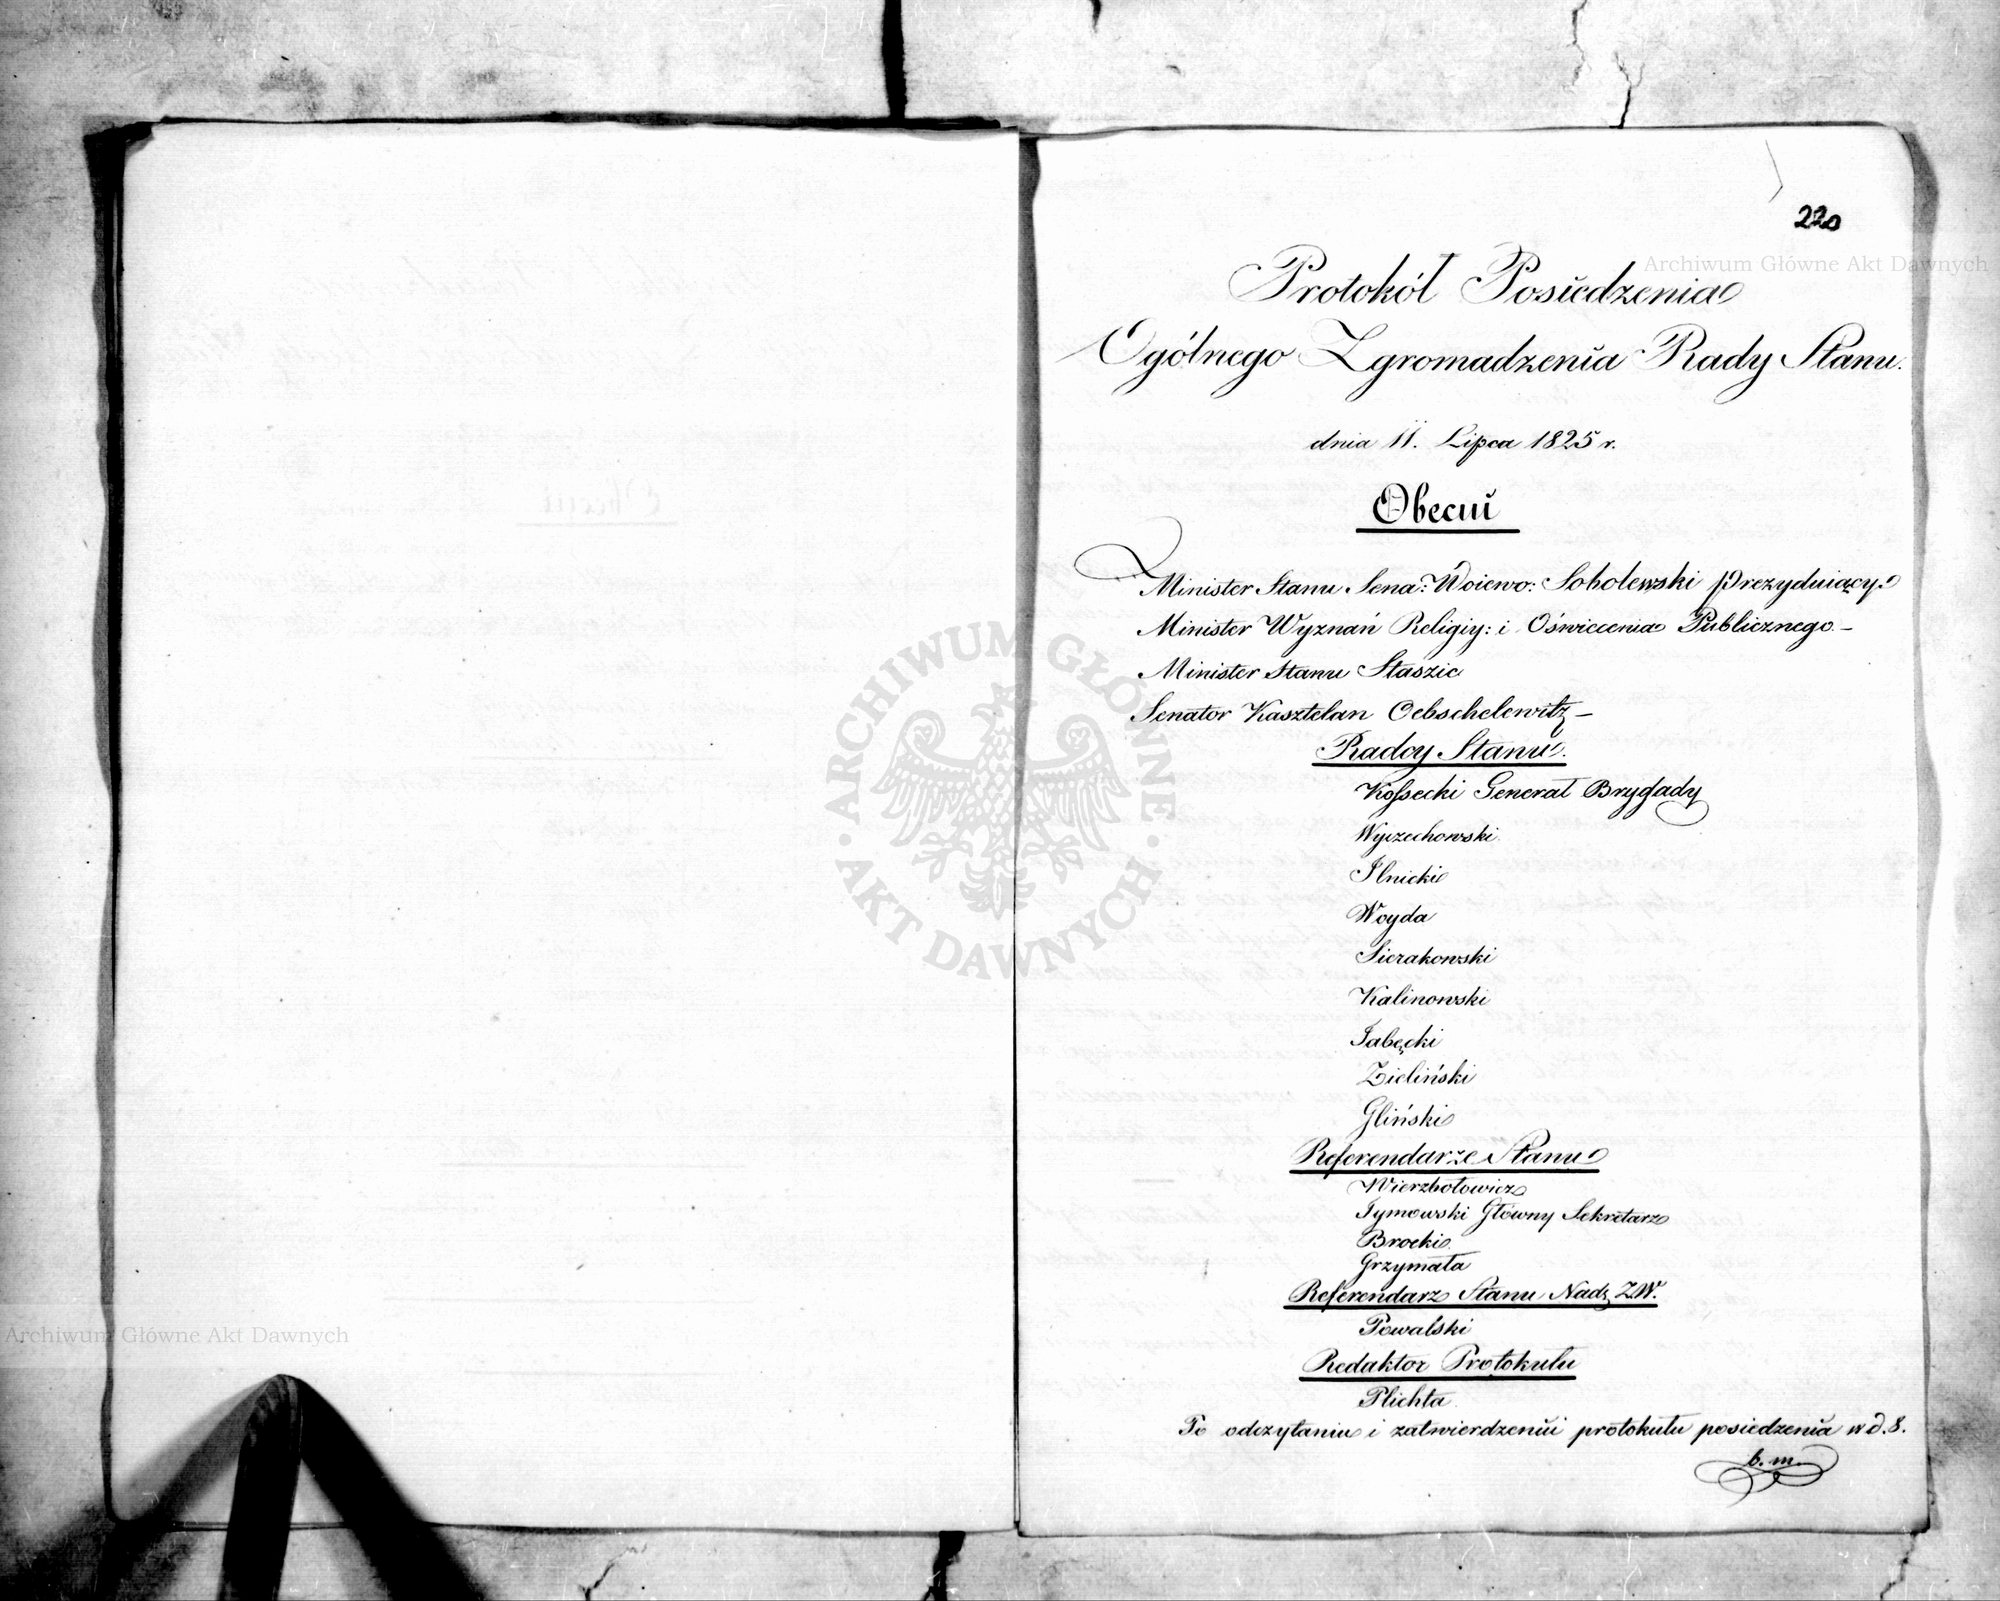 220
Archiwum Główne Akt Dawnych
Protokół Posiedzenia
Ogólnego Zgromadzenia Rady Stanu.
dnia 11. Lipca 1825 r.
Obecni
Minister Stanu Sena: Woiewo: Sobolewski Prezyduiący
Minister Wyznań Religiy: i Oświecenia Publicznego –
Minister Stanu Staszic
Senator Kasztelan Oebschelewitz –
Radcy Stanu.
Kossecki Generał Brygady
Wyczechowski
Ilnicki
Woyda
Sierakowski
Kalinowski
Jabęcki
Zieliński
Gliński
Referendarze Stanu
Wierzbołowicz
Tymowski Główny Sekretarz
Brocki
Grzymała
Referendarz Stanu Nadz ZW.
Powalski
Redaktor Protokułu
Plichta
Po odczytaniu i zatwierdzeniu protokułu posiedzenia w d. 8.
b. m.
ARCHIWUM GŁÓWNE · AKT DAWNYCH ·
Archiwum Główne Akt Dawnych